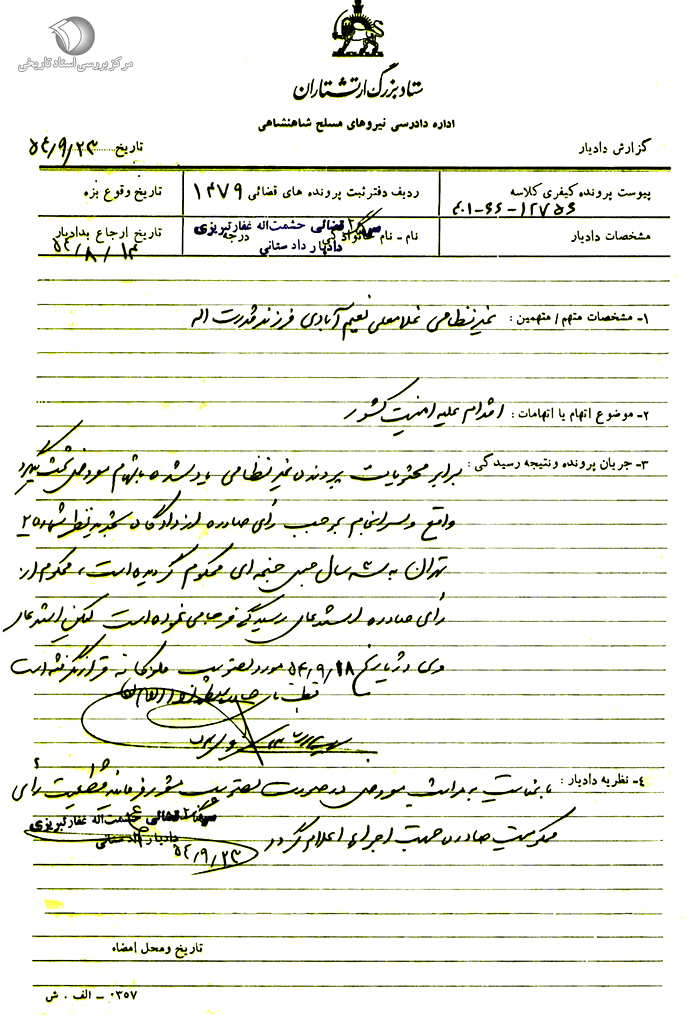 مرکز بررسی اسناد تاریخی
ستاد بزرگ ارتشتاران
اداره دادرسی نیروهای مسلح شاهنشاهی
گزارش دادیار
تاریخ ۵۴/۹/۲۳
پیوست پرونده کیفری کلاسه
ردیف دفتر ثبت پرونده های قضائی ۱۴۷۹
تاریخ وقوع بزه
مشخصات دادیار
نام - نام خانوادگی درجه
قضائی حشمت‌اله غفار تبریزی
دادیار دادستانی
تاریخ ارجاع بدادیار
۵۴/۸/۱۴
۱- مشخصات متهم / متهمین : غیر نظامی غلامعلی نعیم آبادی فرزند قدرت اله
۲- موضوع اتهام یا اتهامات : اقدام علیه امنیت کشور
۳- جریان پرونده ونتیجه رسیدگی : برابر محتویات پرونده غیر نظامی یاد شده باتهام موردی تحت پیگرد
واقع و سرانجام بموجب رأی صادره از دادگاه تجدید نظر شماره ۲۵
تهران به سه سال حبس جنحه ای محکوم گردیده است ، محکوم از
رأی صادره استدعای رسیدگی فرجامی نموده است لکن استدعای
وی در تاریخ ۵۴/۹/۱۸ مورد تصویب ملوکانه قرار نگرفته است
۴- نظریه دادیار : با عنایت به مراتب در صورت تصویب قطعیت رأی
محکومیت صادره جهت اجراء اعلام گردد
قضائی حشمت‌اله غفار تبریزی
دادیار دادستانی
۵۴/۹/۲۳
تاریخ ومحل امضاء
۰۳۵۷ - الف . ش